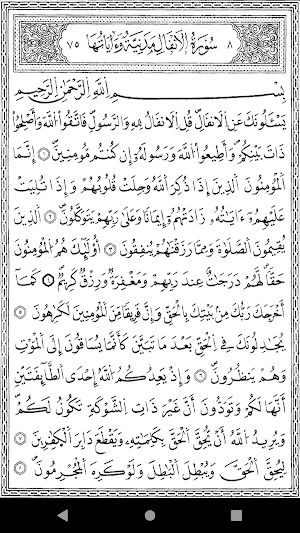 ٨ سُورَةُ الْأَنفَالِ مَدَنِيَّةٌ وَءَايَاتُهَا ٧٥
بِسْمِ اللَّهِ الرَّحْمَٰنِ الرَّحِيمِ
يَسْـَٔلُونَكَ عَنِ الْأَنفَالِ قُلِ الْأَنفَالُ لِلَّهِ وَالرَّسُولِ فَاتَّقُوا اللَّهَ وَأَصْلِحُوا
ذَاتَ بَيْنِكُمْ وَأَطِيعُوا اللَّهَ وَرَسُولَهُ إِن كُنتُم مُّؤْمِنِينَ ١ إِنَّمَا
الْمُؤْمِنُونَ الَّذِينَ إِذَا ذُكِرَ اللَّهُ وَجِلَتْ قُلُوبُهُمْ وَإِذَا تُلِيَتْ
عَلَيْهِمْ ءَايَٰتُهُ زَادَتْهُمْ إِيمَانًا وَعَلَىٰ رَبِّهِمْ يَتَوَكَّلُونَ ٢ الَّذِينَ
يُقِيمُونَ الصَّلَوٰةَ وَمِمَّا رَزَقْنَٰهُمْ يُنفِقُونَ ٣ أُولَٰئِكَ هُمُ الْمُؤْمِنُونَ
حَقًّا لَّهُمْ دَرَجَٰتٌ عِندَ رَبِّهِمْ وَمَغْفِرَةٌ وَرِزْقٌ كَرِيمٌ ٤ كَمَا
أَخْرَجَكَ رَبُّكَ مِن بَيْتِكَ بِالْحَقِّ وَإِنَّ فَرِيقًا مِّنَ الْمُؤْمِنِينَ لَكَٰرِهُونَ ٥
يُجَٰدِلُونَكَ فِي الْحَقِّ بَعْدَ مَا تَبَيَّنَ كَأَنَّمَا يُسَاقُونَ إِلَى الْمَوْتِ
وَهُمْ يَنظُرُونَ ٦ وَإِذْ يَعِدُكُمُ اللَّهُ إِحْدَى الطَّائِفَتَيْنِ
أَنَّهَا لَكُمْ وَتَوَدُّونَ أَنَّ غَيْرَ ذَاتِ الشَّوْكَةِ تَكُونُ لَكُمْ
وَيُرِيدُ اللَّهُ أَن يُحِقَّ الْحَقَّ بِكَلِمَٰتِهِ وَيَقْطَعَ دَابِرَ الْكَٰفِرِينَ ٧
لِيُحِقَّ الْحَقَّ وَيُبْطِلَ الْبَٰطِلَ وَلَوْ كَرِهَ الْمُجْرِمُونَ ٨